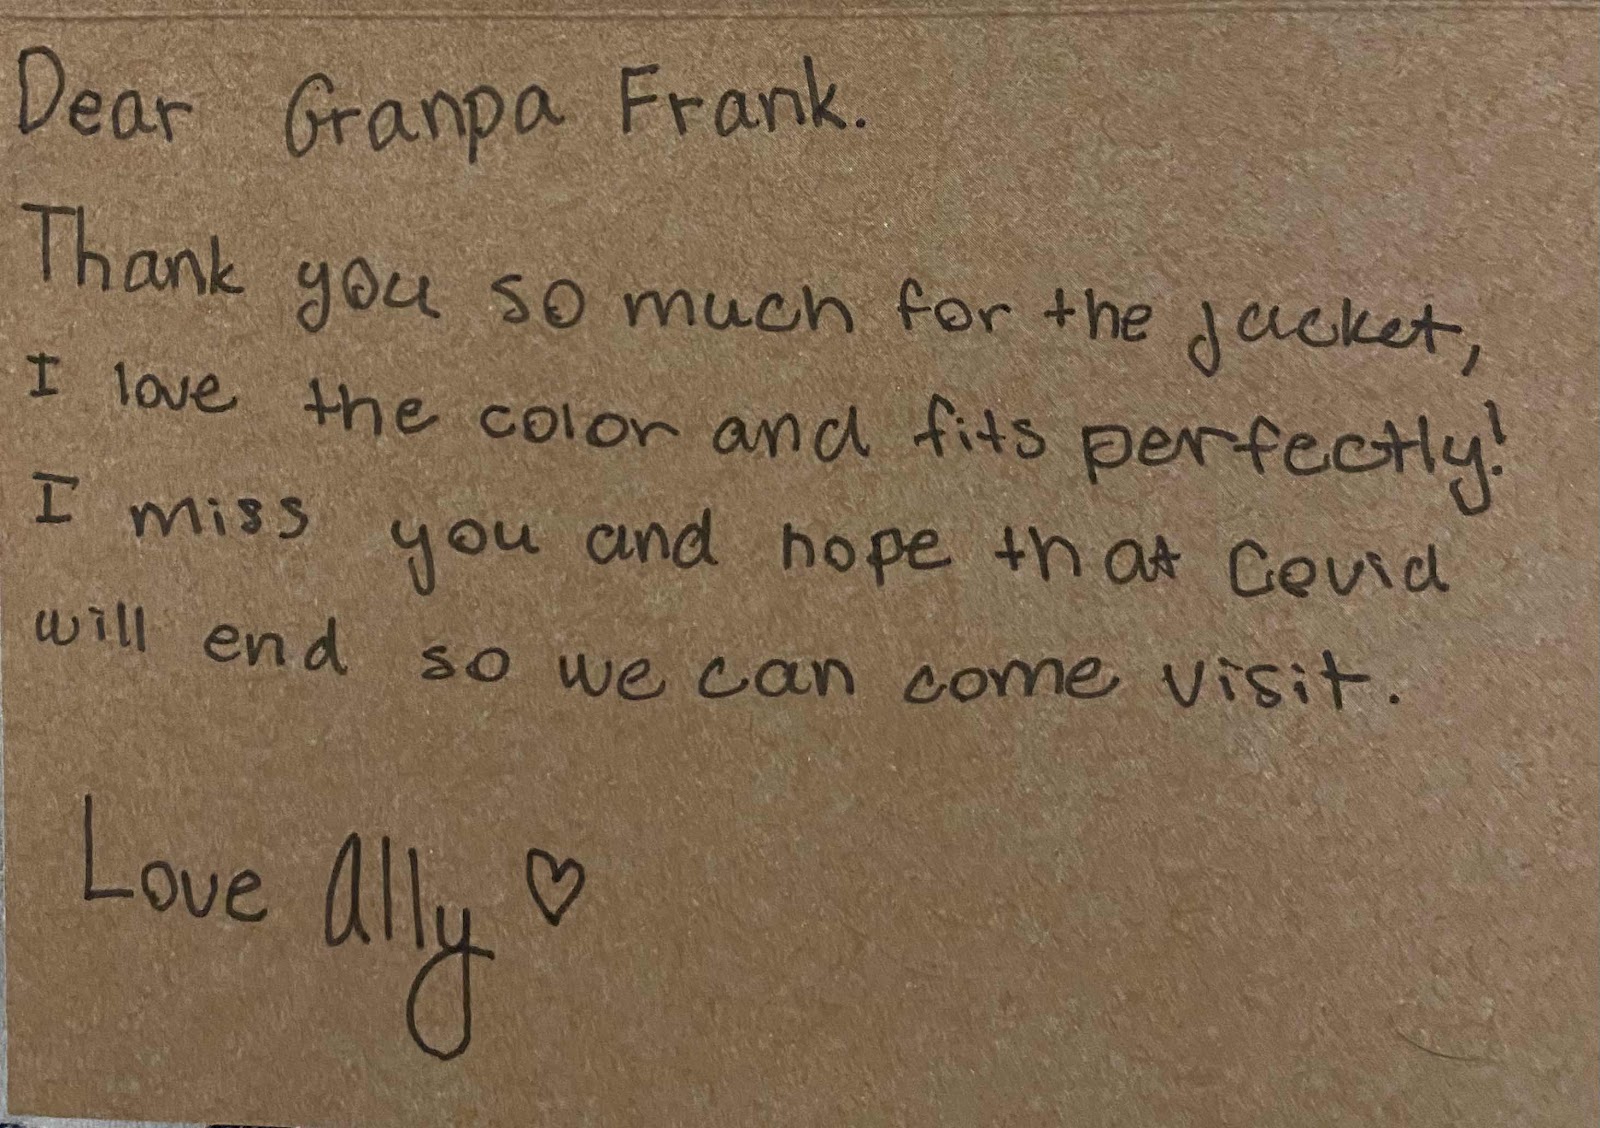 Dear Granpa Frank.
Thank you so much for the jacket,
I love the color and fits perfectly!
I miss you and hope that Covid
will end so we can come visit.
Love Ally ♡